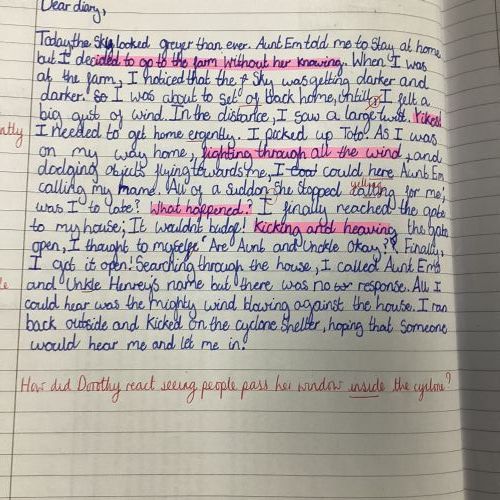 Dear diary,
Today the sky looked greyer than ever. Aunt Em told me to stay at home
but I decided to go to the farm without her knowing. When I was
at the farm, I noticed that the sky was getting darker and
darker. So I was about to set of back home, untill I felt a
big gust of wind. In the distance, I saw a large twist. Yikes!
I needed to get home ergently. I picked up Toto. As I was
on my way home, fighting through all the wind, and
dodging objects flying towards me, I could here Aunt Em
calling my name. All of a suddon she stopped calling for me,
yelling
was I to late? What happened? I finally reached the gate
to my house; It wouldnt budge! Kicking and heaving the gate
open, I thought to myself "Are Aunt and Unckle okay?" Finally,
I got it open! Searching through the house, I called Aunt Em's
and Unkle Henrey's name but there was no response. All I
could hear was the mighty wind blowing against the house. I ran
back outside and kicked on the cyclone shelter, hoping that someone
would hear me and let me in.
How did Dorothy react seeing people pass her window inside the cyclone?